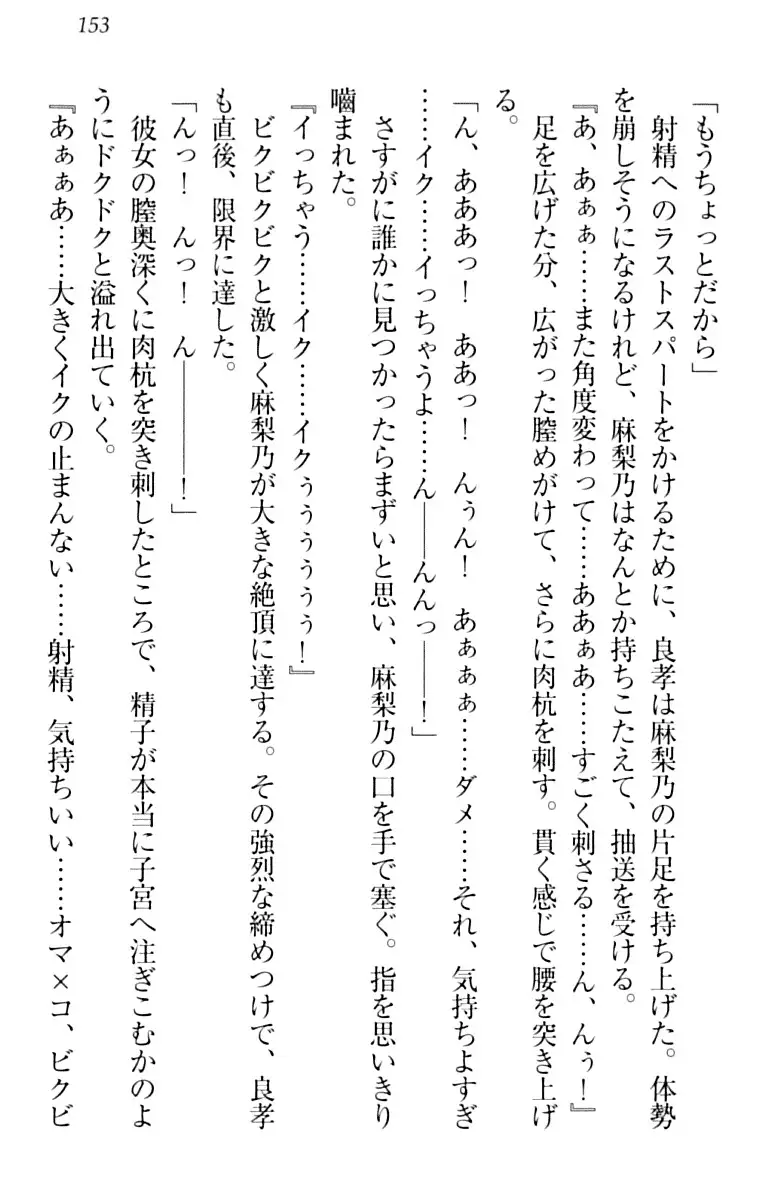 153
「もうちょっとだから」
　射精へのラストスパートをかけるために、良孝は麻梨乃の片足を持ち上げた。体勢
を崩しそうになるけれど、麻梨乃はなんとか持ちこたえて、抽送を受ける。
『あ、あぁぁ……また角度変わって……ああぁあ……すごく刺さる……ん、んぅ！』
　足を広げた分、広がった膣めがけて、さらに肉杭を刺す。貫く感じで腰を突き上げ
る。
「ん、あああっ！　ああっ！　んぅん！　あぁぁぁ……ダメ……それ、気持ちよすぎ
……イク……イっちゃうよ……ん――んんっ――！」
　さすがに誰かに見つかったらまずいと思い、麻梨乃の口を手で塞ぐ。指を思いきり
嚙まれた。
『イっちゃう……イク……イクぅぅぅぅぅ！』
　ビクビクビクと激しく麻梨乃が大きな絶頂に達する。その強烈な締めつけで、良孝
も直後、限界に達した。
「んっ！　んっ！　ん――――！」
　彼女の膣奥深くに肉杭を突き刺したところで、精子が本当に子宮へ注ぎこむかのよ
うにドクドクと溢れ出ていく。
『あぁぁあ……大きくイクの止まんない……射精、気持ちいい……オマ×コ、ビクビ